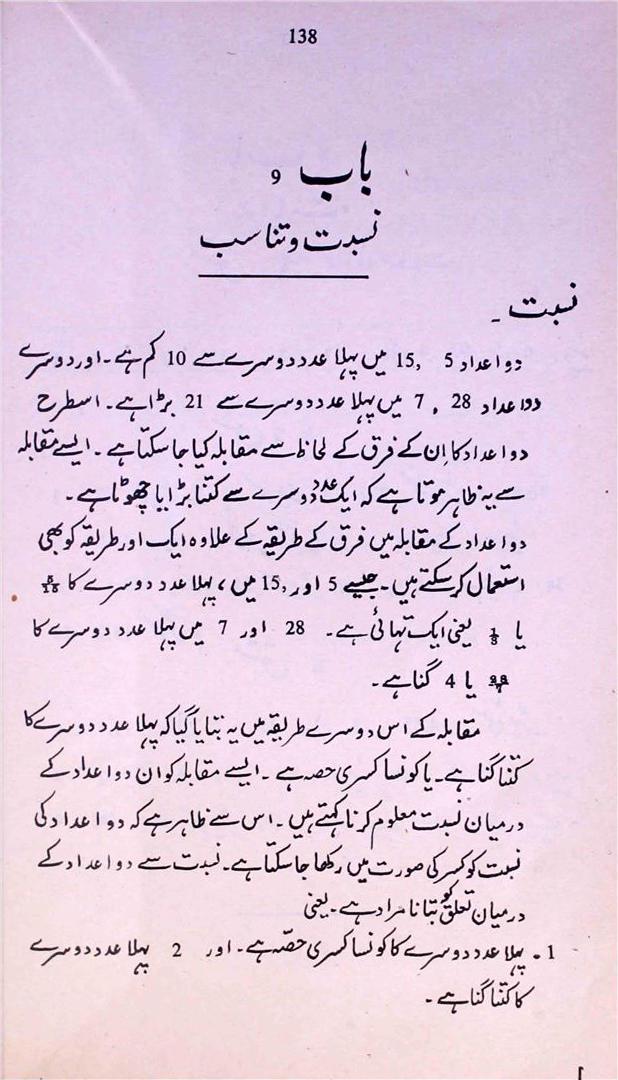 138
باب 9
نسبت و تناسب
نسبت ۔
دو اعداد 5 , 15 میں پہلا عدد دوسرے سے 10 کم ہے ۔ اور دوسرے
دو اعداد 28 , 7 میں پہلا عدد دوسرے سے 21 بڑا ہے ۔ اسطرح
دو اعداد کا اِن کے فرق کے لحاظ سے مقابلہ کیا جا سکتا ہے ۔ ایسے مقابلہ
سے یہ ظاہر ہوتا ہے کہ ایک عدد دوسرے سے کتنا بڑا یا چھوٹا ہے ۔
دو اعداد کے مقابلہ میں فرق کے طریقہ کے علاوہ ایک اور طریقہ کو بھی
استعمال کرسکتے ہیں ۔ جیسے 5 اور 15, میں ، پہلا عدد دوسرے کا 5/15
یا 1/3 یعنی ایک تہائی ہے ۔ 28 اور 7 میں پہلا عدد دوسرے کا
28/7 یا 4 گنا ہے ۔
مقابلہ کے اس دوسرے طریقہ میں یہ بتایا گیا کہ پہلا عدد دوسرے کا
کتنا گنا ہے ۔ یا کونسا کسری حصہ ہے ۔ ایسے مقابلہ کو ان دو اعداد کے
درمیان نسبت معلوم کرنا کہتے ہیں ۔ اس سے ظاہر ہے کہ دو اعداد کی
نسبت کو کسر کی صورت میں رکھا جا سکتا ہے ۔ نسبت سے دو اعداد کے
درمیان تعلق کو بتانا مراد ہے ۔ یعنی
1 ۔ پہلا عدد دوسرے کا کونسا کسری حصّہ ہے ۔ اور 2 پہلا عدد دوسرے
کا کتنا گنا ہے ۔